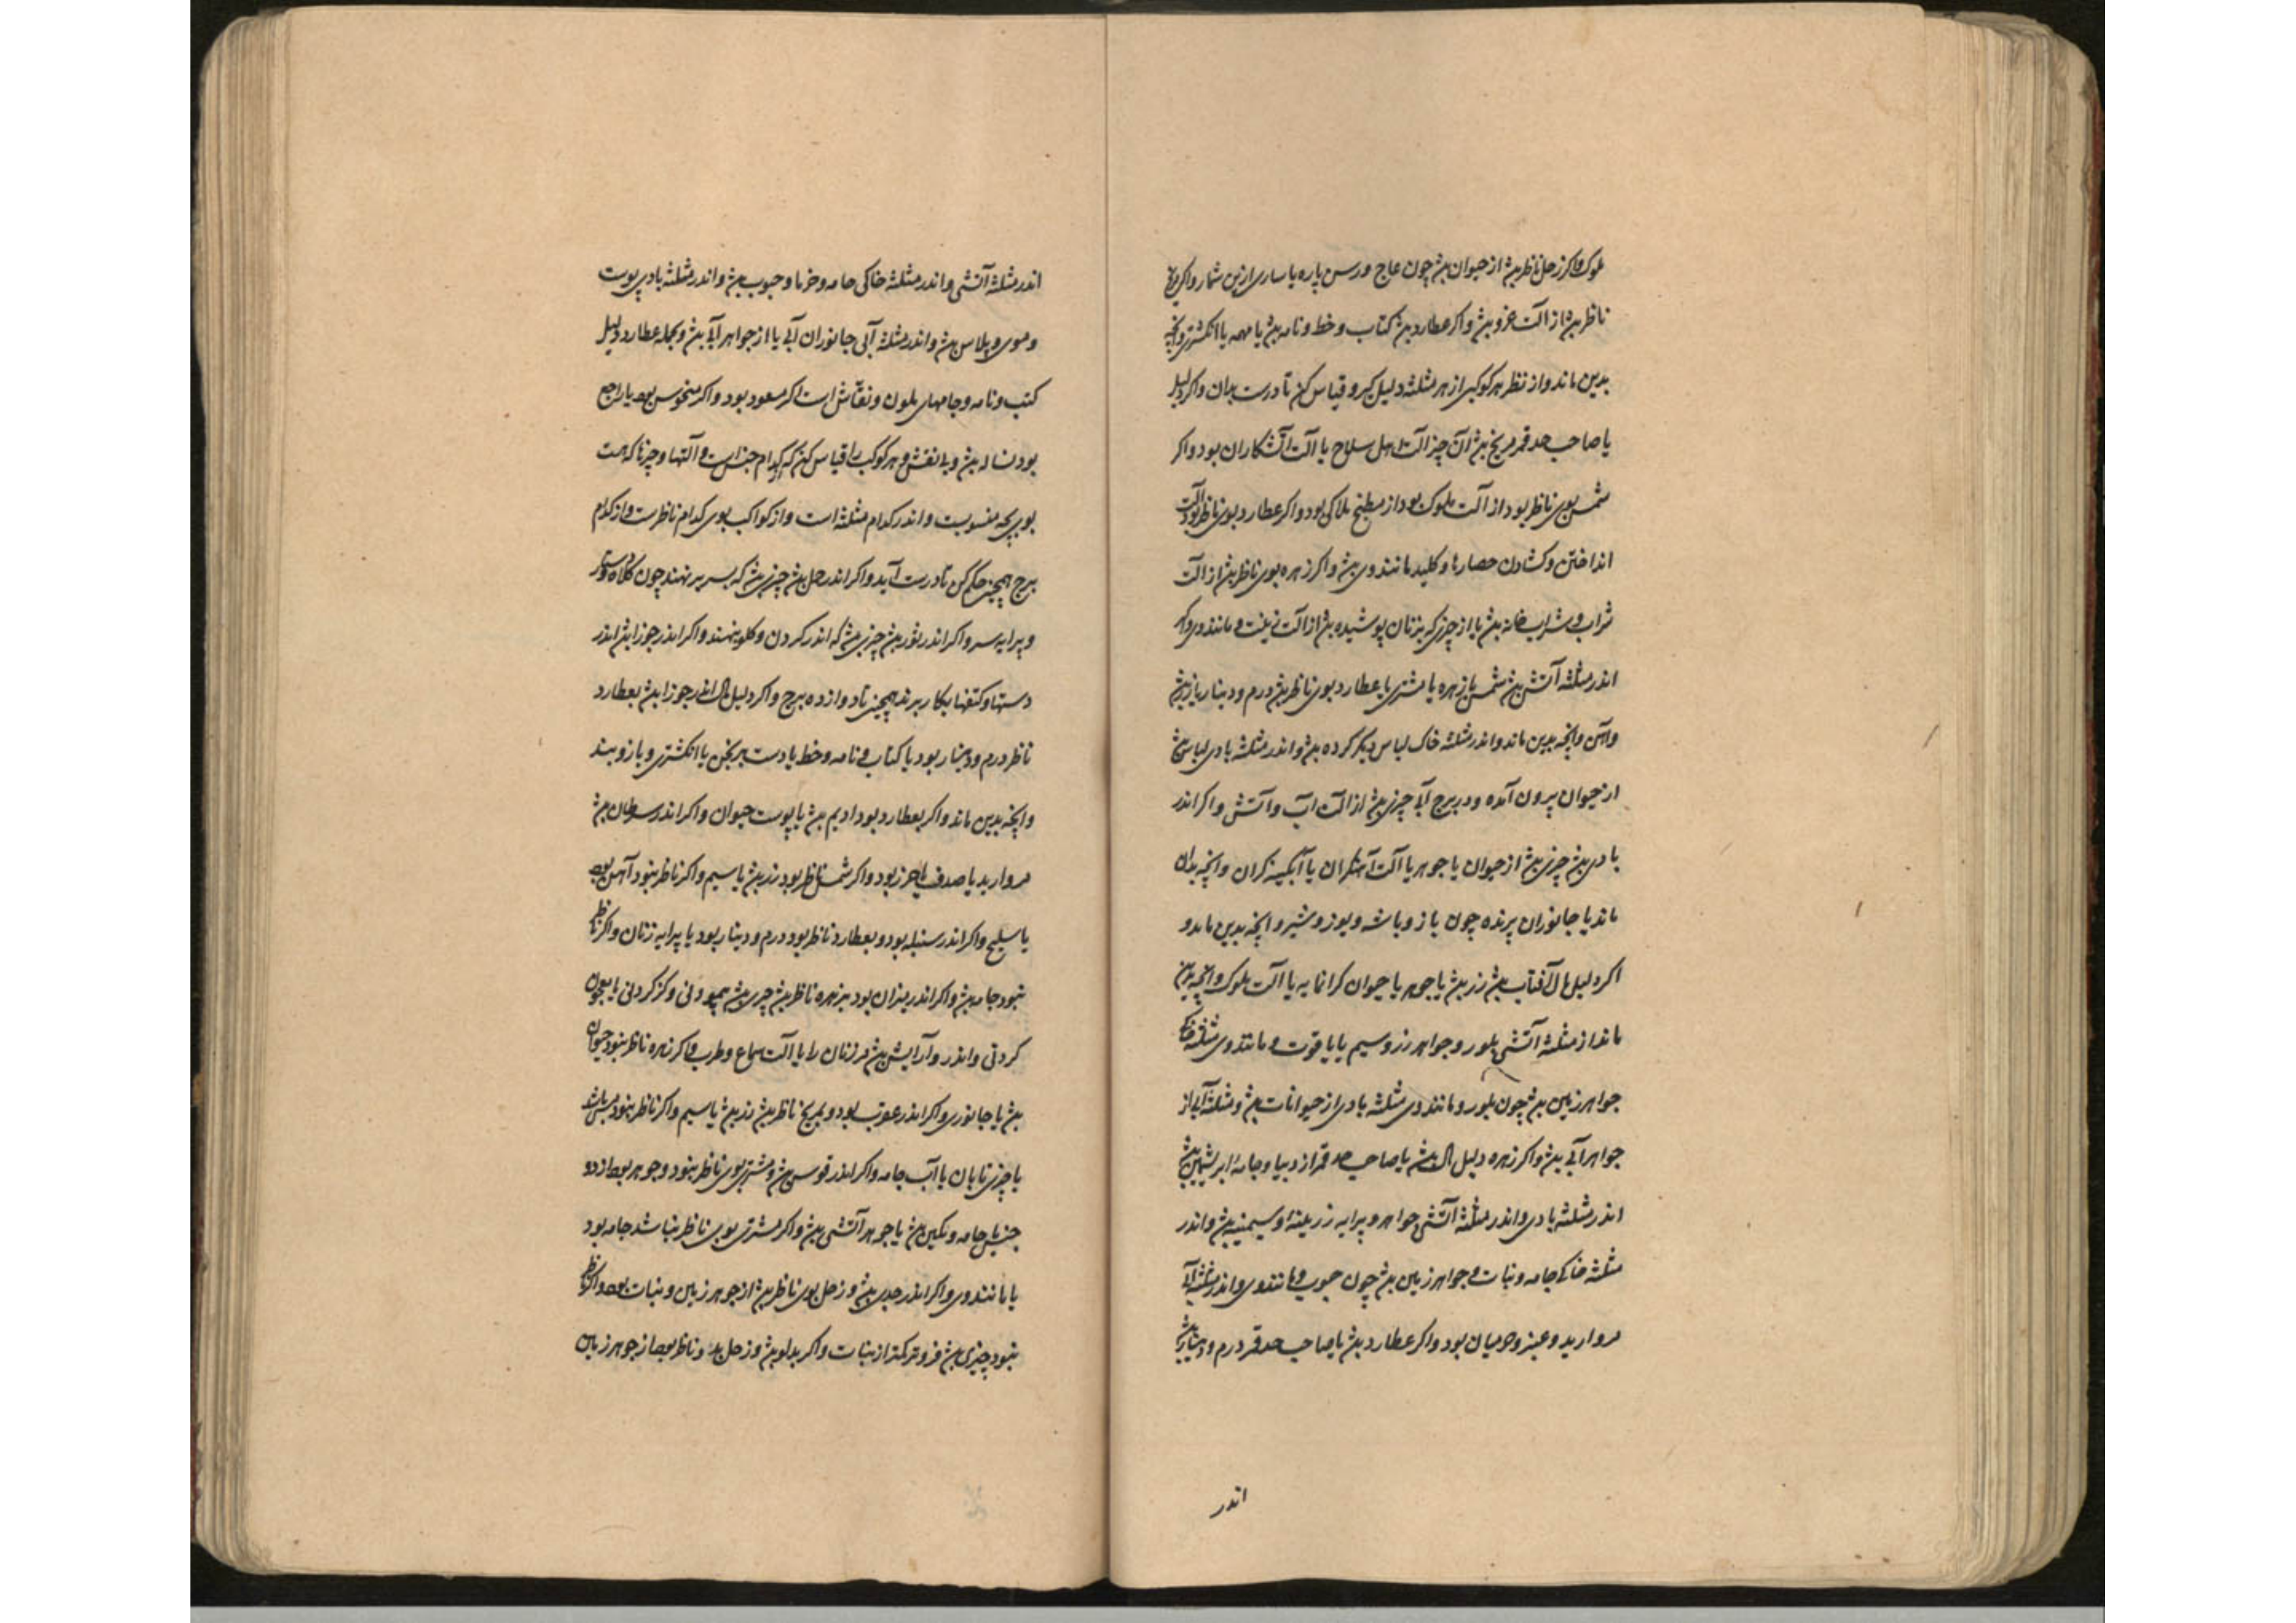 ملوک واکر زحل ناظر بش از حیوان بش چون عاج و رسن پاره یا ساری ازین شمار واکر مریخ
ناظر بش از آلت غزو بش واکر عطارد بش کتاب و خط و نامه بش یا مهره یا انکشتری وانچه
بدین ماند و از نظر هر کوکبی از هر مثلثه دلیل کیر و قیاس کن تا درست بدان واکر دلیل
یا صاحب حد قمر مریخ بش آن چیز آلت اهل سلاح یا آلت آتشکاران بود واکر
شمس بوی ناظر بود از آلت ملوک بود از مطبخ ملاکی بود واکر عطارد بوی ناظر بود آلت
انداختن و کشادن حصارها و کلید مانند وی بش واکر زهره بوی ناظر بش از آلت
شراب و شرابخانه بش یا از چیزی که بزنان پوشیده بش از آلت زینت و مانند وی واکر
اندر مثلثه آتشی بش شمس یا زهره یا مشتری یا عطارد بوی ناظر بش درم و دینار یا زر بش
وآهن وانچه بدین ماند واندر مثلثه خاک لباس دیکر کرده بش واندر مثلثه بادی لباس بش
از حیوان بیرون آمده ودر برج آبی چیزی بش از آلت آب و آتش واکر اندر
بادی بش چیزی بش از حیوان یا جوهر یا آلت آهنکران یا آبکینه کران وانچه بدان
ماند یا جانوران پرنده چون باز و باشه و یوز و شیر وانچه بدین ماند و
اکر دلیل مال آفتاب بش زر بش یا جوهر یا حیوان کرانمایه یا آلت ملوک وانچه بدین
ماند از مثلثه آتشی بلور و جواهر زر و سیم یا یاقوت و مانند وی مثلثه خاکی
جواهر زمین بش چون بلور و مانند وی مثلثه بادی از حیوانات بش و مثلثه آبی از
جواهر آبی بش واکر زهره دلیل مال بش یا صاحب حد قمر از دیبا و جامه ابریشمین بش
اندر مثلثه بادی و اندر مثلثه آتشی جواهر و پیرایه زرینه او سیمینه بش و اندر
مثلثه خاکی جامه و نبات و جواهر زمین بش چون حبوب و مانند وی واندر مثلثه آبی
مروارید و عنبر و میان بود واکر عطارد بش یا صاحب حد قمر درم و دینار بش
اندر
اندر مثلثه آتشی واندر مثلثه خاکی جامه و خرما و حبوب بش واندر مثلثه بادی پوست
و موی و پلاس بش واندر مثلثه آبی جانوران آبی یا از جواهر آبی بش و بجمله عطارد دلیل
کتب و نامه و جامهای ملون و نقاش است اکر مسعود بود واکر منخوس بود یا راجع
بود نساده بش و بی نقش و هر کوکب را قیاس کن که کدام جنس است و آلتها و چیزها که هست
بوی بچه منسوبست و اندر کدام مثلثه است و از کواکب بوی کدام ناظرست و از کدام
برج همچنین حکم کن تا درست آید واکر اندر حمل بش چیزی بش که بسر برنهند چون کلاه و دستار
و پیرایه سر واکر اندر ثور بش چیزی بش که اندر کردن و کلو بنهند واکر اندر جوزا بش اندر
دستها و کتفها بکار برند همچنین تا دوازده برج واکر دلیل مال اندر جوزا بش بعطارد
ناظر درم و دینار بود یا کتاب و نامه و خط یا دست برنجن یا انکشتری و بازوبند
وانچه بدین ماند واکر بعطارد بود ادیم بش یا پوست حیوان واکر اندر سرطان بش
مروارید یا صدف یا خرز بود واکر شمس ناظر بود زر بش یا سیم واکر ناظر نبود آهن بود
یا سلیح واکر اندر سنبله بود و بعطارد ناظر بود درم و دینار بود یا پیرایه زنان واکر ناظر
نبود جامه بش واکر اندر میزان بود بزهره ناظر بش چیزی بش پیمودنی و کز کردنی یا بعجون
کردنی و اندر و آرایش بش مر زنان را یا آلت سماع و طرب واکر زهره ناظر نبود حیوان
بش یا جانوری واکر اندر عقرب بود و بمریخ ناظر بش زر بش یا سیم واکر ناظر نبود مس باشد
یا چیزی تابان یا آب جامه واکر اندر قوس بش و مشتری بوی ناظر نبود و جوهر بود از دو
جنس یا جامه و نکین بش یا جوهر آتشی بش واکر مشتری بوی ناظر نباشد جامه بود
یا مانند وی واکر اندر جدی بش و زحل بوی ناظر بش از جوهر زمین و نبات بود واکر ناظر
نبود چیزی بش فروتر کمتر از نبات واکر بدلو بش و زحل بدو ناظر بود از جوهر زمین